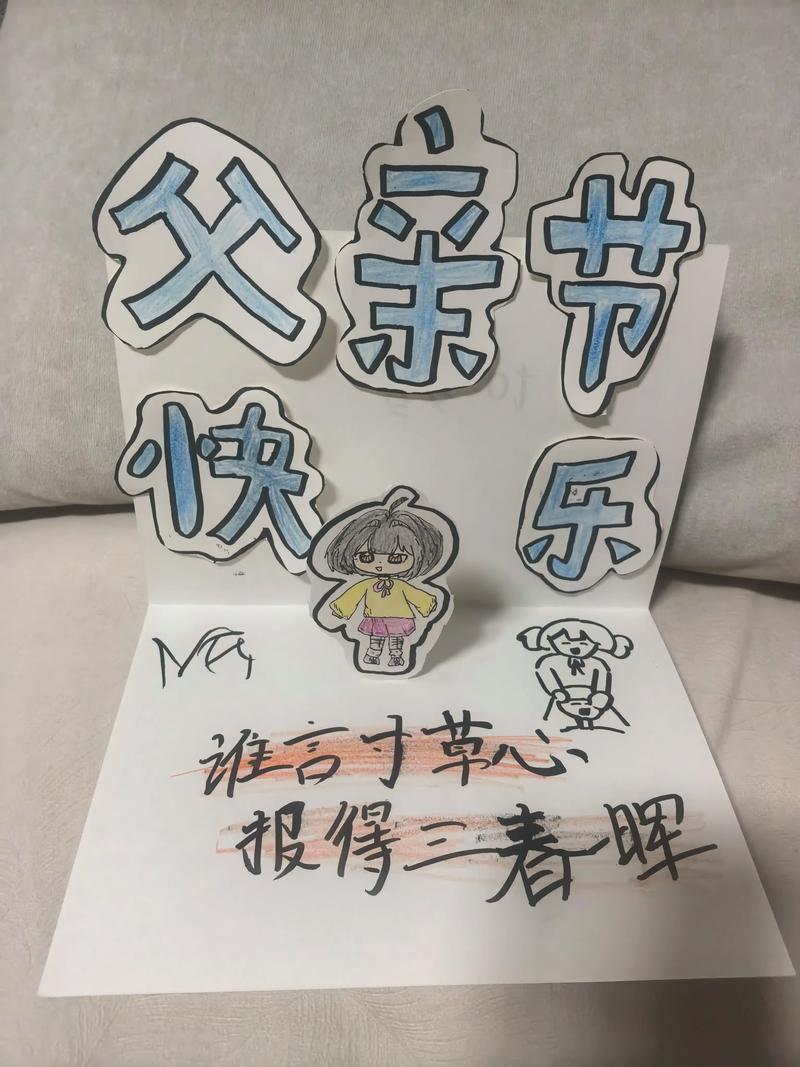 父亲节
快乐
谁言寸草心
报得三春晖